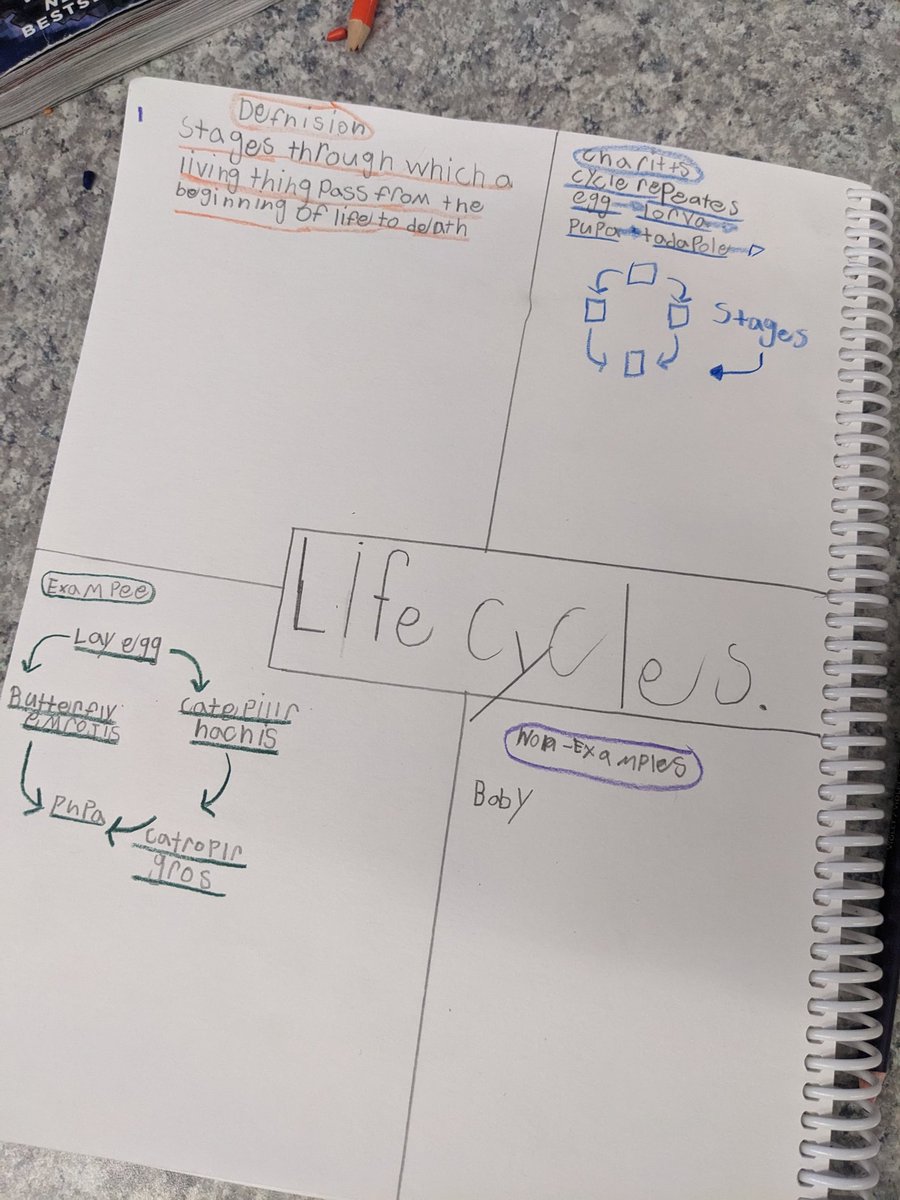 BESTS
Defnision
Stages through which a
living thing pass from the
beginning of life to death
charitts
cycle repeates
egg lorva
pupa tadapole
Stages
Life cycles.
Exampee
Lay egg
Butterfly
emrojis
caterpillr
hachis
pupa
catropir
gros
Non-Examples
Baby